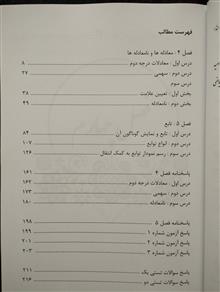 فهرست مطالب
فصل ۴ : معادله ها و نامعادله ها
درس اول : معادلات درجه دوم ۸
درس دوم : سهمی ۲۷
درس سوم
بخش اول : تعیین علامت ۳۸
بخش دوم : نامعادله ۴۹
فصل ۵ : تابع
درس اول : تابع و نمایش گوناگون آن ۸۴
درس دوم : انواع توابع ۱۰۷
درس سوم : رسم نمودار توابع به کمک انتقال ۱۲۶
پاسخنامه فصل ۴ ۱۶۱
درس اول : معادلات درجه دوم ۱۶۲
درس دوم : سهمی ۱۷۳
درس سوم : نامعادله ۱۸۰
پاسخنامه فصل ۵ ۱۹۸
پاسخ آزمون شماره ۱ ۱۹۹
پاسخ آزمون شماره ۲ ۲۰۱
پاسخ آزمون شماره ۳ ۲۰۳
پاسخ سوالات تستی یک ۲۱۱
پاسخ سوالات تستی دو ۲۱۶